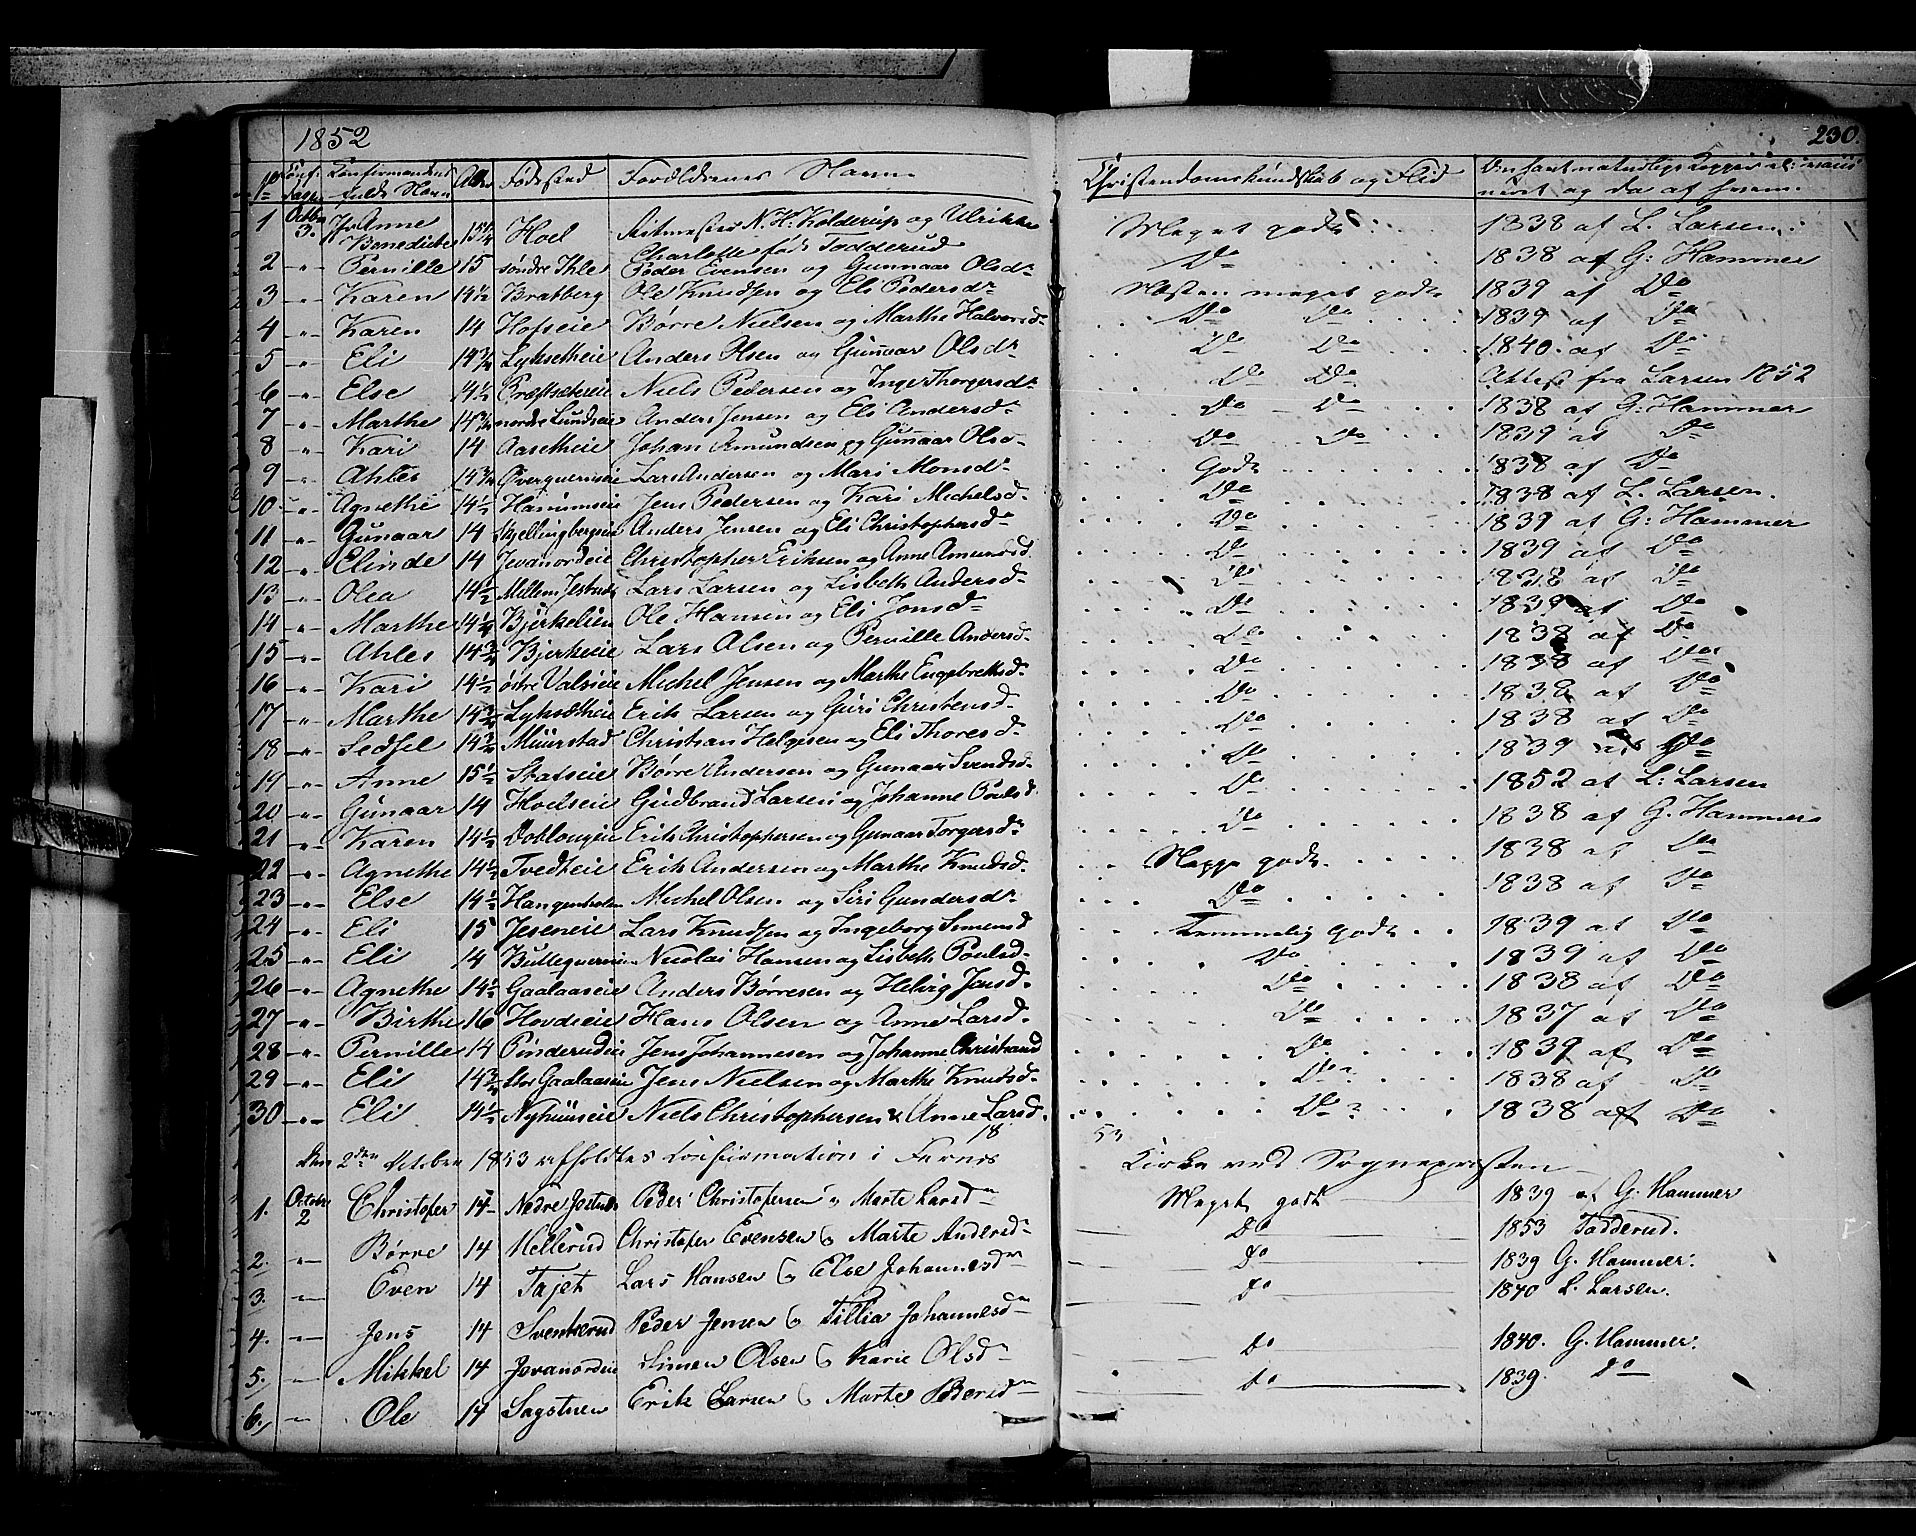 1852
230.
No Conf. Dagen Confirmandens fulde Navn Alder Fødested Forældrenes Navne Christendomskundskab og Flid
1 Octbr 3. Jfr Anne Benedicte 15 1/4 Hoel Ritmester N. H. Kolderup og Ulrikke Charlotte født Todderud Meget godt 1838 af L. Larsen.
2 -"- Pernille 15 søndre Ihle Peder Evensen og Gunnaar Olsdr Do 1838 af G: Hammer
3 -"- Karen 14 1/2 Bratberg Ole Knudsen og Eli Pedersdr Næsten meget godt 1839 af Do
4 " Karen 14 Hofseie Børre Nielsen og Marthe Halvorsdr Do Do 1839 af Do
5 " Eli 14 3/4 Lyksetheie Anders Olsen og Gunaar Olsdr Do Do 1840 af Do
6 -"- Else 14 1/2 Præstsætereie Niels Pedersen og Inge Thorgersdr Do Do Attest fra Larsen 1852
7 -"- Marthe 14 3/4 nordre Lundseie Anders Jensen og Eli Andersd. Do Do 1838 af G: Hammer
8 " Kari 14 Aasetheie Johan Amundsen og Gunaar Olsd Do Do 1839 af Do
9 -"- Ahles 14 3/4 Øverquerneie Lars Andersen og Mari Monsdr Godt 1838 af Do
10 -"- Agnethe 14 1/2 Hammseie Jens Pedersen og Kari Michelsd. Do 1838 af L. Larsen.
11 -"- Gunaar 14 Kjellingbergseie Anders Jensen og Eli Christophersd. Do 1839 af G: Hammer
12 -"- Elinde 14 Jevanordeie Christopher Eriksen og Anne Amundsd Do 1839 af Do
13 -"- Olea 14 1/2 Mellem Jøstuds Lars Larsen og Lisbeth Andersd. Do 1838 af Do
14 -"- Marthe 14 1/2 Bjerkelien Ole Hansen og Eli Jonsd. Do 1839 af Do
15 -"- Ahles 14 3/4 Bjerkeeie Lars Olsen og Pernille Andersd. Do 1838 af Do
16 -"- Kari 14 1/2 østre Valseie Michel Jensen og Marthe Engebrethsd. Do 1838 af Do
17 -"- Marthe 14 3/4 Lyksætheie Erik Larsen og Guri Christensd. Do 1838 af Do
18 -"- Sedsel 14 3/4 Muurstad Christian Helgesen og Eli Thoresd. Do 1838 af Do
19 -"- Anne 15 1/2 Statseie Børre Andersen og Gunaar Svendsd. Do 1839 af Do
20 -"- Gunaar 14 Hoelseie Gudbrand Larsen og Johanne Poulsd. Do 1852 af L: Larsen
21 -"- Karen 14 1/2 Dobloug eie Erik Christophersen og Gunaar Torgersd. Do 1838 af G. Hammer
22 -"- Agnethe 14 1/2 Tvedteie Erik Andersen og Marthe Knudsd. Neppe godt 1838 af Do
23 -"- Else 14 1/2 Hangenholm Michel Olsen og Siri Gundersdr Do 1838 af Do
24 -"- Eli 15 Jeseneie Lars Knudsen og Ingeborg Simensd Temmelig godt 1839 af Do
25 -"- Eli 14 Buttequerneie Nicolai Hansen og Lisbeth Poulsd. Do 1839 af Do
26 -"- Agnethe 14 1/2 Gaalaaseie Anders Børresen og Helvig Jonsd. Do 1838 af Do
27 -"- Birthe 16 Hovdseie Hans Olsen og Anne Larsd. Do 1837 af Do
28 -"- Pernille 14 Pinderudeie Jens Johannesen og Johanne Christiansd Do 1839 af Do
29 -"- Eli 14 3/4 store Gaalaaseie Jens Nielsen og Marthe Knudsd. Do? 1838 af Do
30 -"- Eli 14 1/2 Nyhuuseie Niels Christophersen & Anne Larsd. Do? 1838 af Do
18 53
Den 2den October 1853 afholdtes Confirmation i Furnes Kirke ved Sognepresten
1. October 2 Christofer 14 Nedre Jøstuds Peder Christofersen og Marte Larsdr Meget godt 1839 af G. Hammer
2. " Børre 14 Hellerud Christofer Evensen og Marte Andersdr Do 1853 Todderud.
3. " Even 14 Tajet Lars Hansen og Else Johannesdr Do 1839 G. Hammer.
4. " Jens 14 Svenkerud Peder Jensen og Tillia Johannesdr do 1840 L. Larsen.
5. " Mikkel 14 Jevanordeie Simen Olsen og Karie Olsdr do 1840. G. Hammer.
6. " Ole 14 Sagstuen Erik Larsen og Marte Pedersdr do 1839. Do